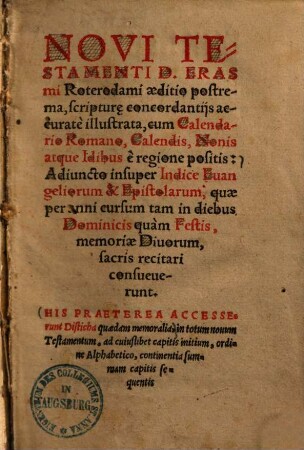 NOVI TE-
STAMENTI D. ERAS
mi Roterodami æditio postre-
ma, scripturę concordantijs ac-
curatè illustrata, cum Calenda-
rio Romano, Calendis, Nonis
atque Idibus è regione positis:
Adiuncto insuper Indice Euan
geliorum & Epistolarum, quæ
per anni cursum tam in diebus
Dominicis quàm Festis,
memoriæ Diuorum,
sacris recitari
consueue-
runt.
HIS PRAETEREA ACCESSE-
runt Disticha quædam memoralia in totum nouum
Testamentum, ad cuiuslibet capitis initium, ordi
ne Alphabetico, continentia sum-
mam capitis se-
quentis
BIBLIOTHEK DES COLLEGIUMS ST. ANNA
IN
AUGSBURG